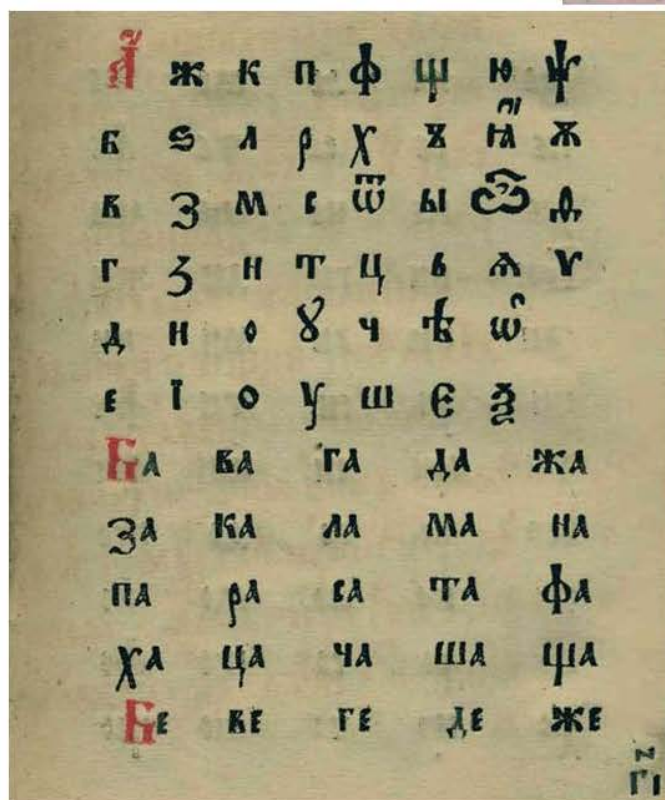 А ж к п ф щ ю ѱ
б ѕ л р х ъ ꙗ ѫ
в з м с ѿ ы ѽ д
г ꙁ н т ц ь ѧ ѵ
д и о ꙋ ч ѣ ѡ
е ї о у ш є ѯ
Ба ва га да жа
за ка ла ма на
па ра са та фа
ха ца ча ша ща
Бе ве ге де же
гі